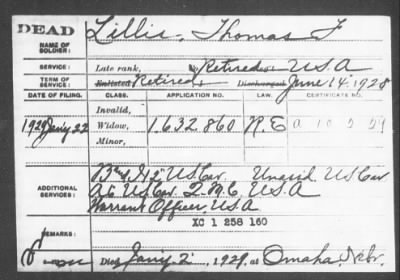 DEAD
NAME OF SOLDIER: Lillis, Thomas F
SERVICE: Late rank, Retired, USA
TERM OF SERVICE: Enlisted Retired, Discharged June 14, 1928
DATE OF FILING. CLASS. APPLICATION NO. LAW. CERTIFICATE NO.
Invalid,
1929 Jan'y 22 Widow, 1.632.860 R.E A 10 2 29
Minor,
ADDITIONAL SERVICES: B 12 US Cav. Unassd. US Cav
US Cav. Q.M.C, U.S.A
Warrant Officer, U.S.A
XC 1 258 160
REMARKS:
Died Jan'y 2, 1929, at Omaha, Nebr.